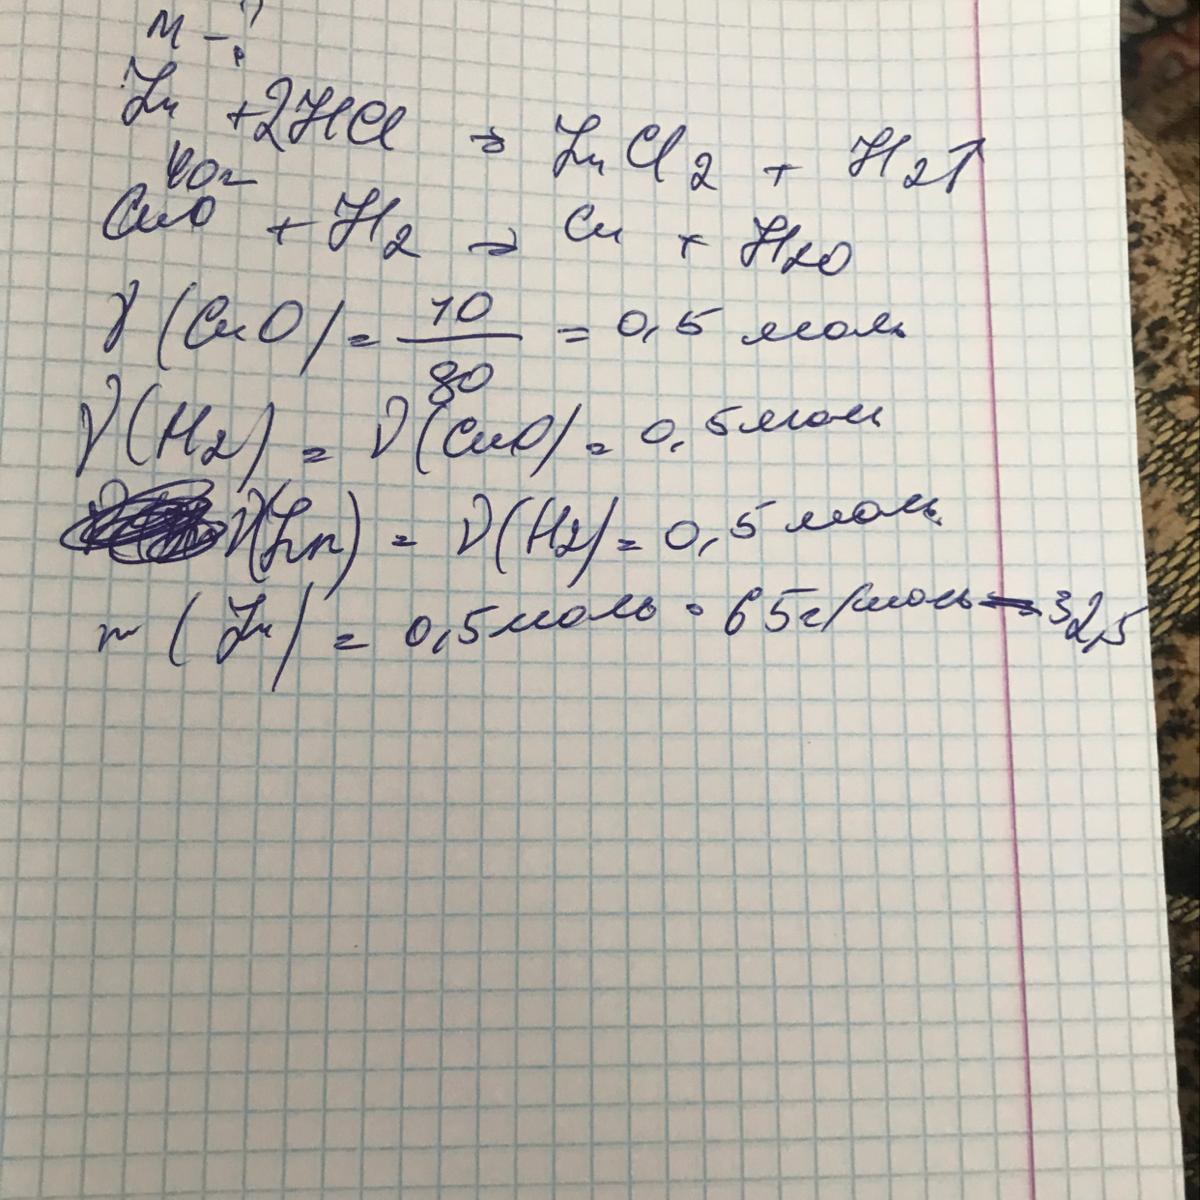 M - ?
Zn + 2HCl → ZnCl2 + H2↑
40г
CuO + H2 → Cu + H2O
ν(CuO) = 40/80 = 0,5 моль
ν(H2) = ν(CuO) = 0,5 моль
ν(Zn) = ν(H2) = 0,5 моль
m(Zn) = 0,5 моль · 65 г/моль = 32,5